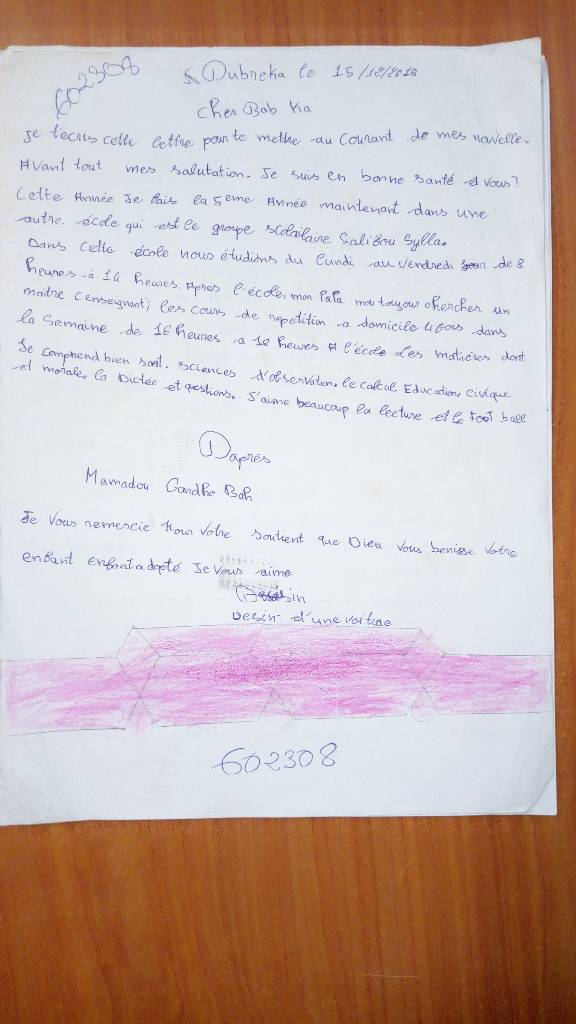 602308
Dubreka le 15/12/2018
Cher Bab Ka
Je tecris cette lettre pour te mettre au Courant de mes nouvelle.
Avant tout mes salutation. Je suis en bonne santé et vous?
Cette Année Je fais la 5eme Année maintenant dans une
autre école qui est le groupe scolailaire Salifou Sylla.
Dans cette école nous étudions du lundi au vendredi de 8
heures à 14 heures. Apres l'école, mon Papa mou toujour chercher un
maitre (enseignant) les cours de repetition a domicile 4 fois dans
la Semaine de 16 heures a 18 heures A l'école les matières dont
Je comprend bien sont. sciences d'observation. le calcul Education civique
et morale, la Dictée et questions. J'aime beaucoup la lecture et le Foot ball
Daprés
Mamadou Gandho Bah
Je Vous remercie Pour votre soutient que Dieu vous benisse votre
enfant enfant adopté Je vous aime
Desin d'une voiture
602308